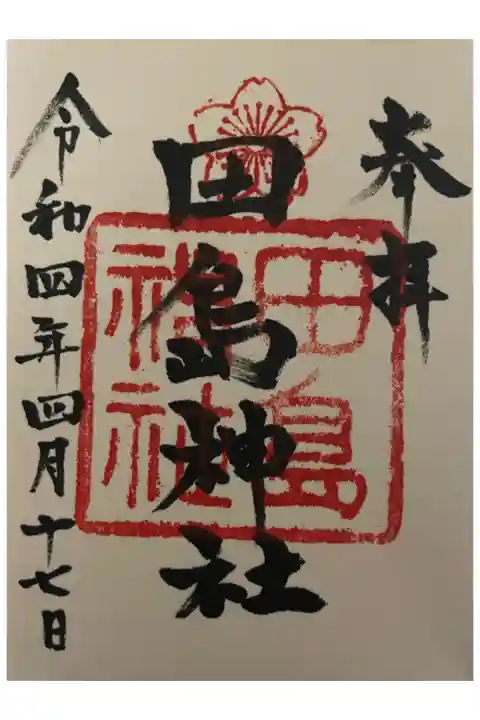 奉拝
田島神社
田島
神社
令和四年四月十七日